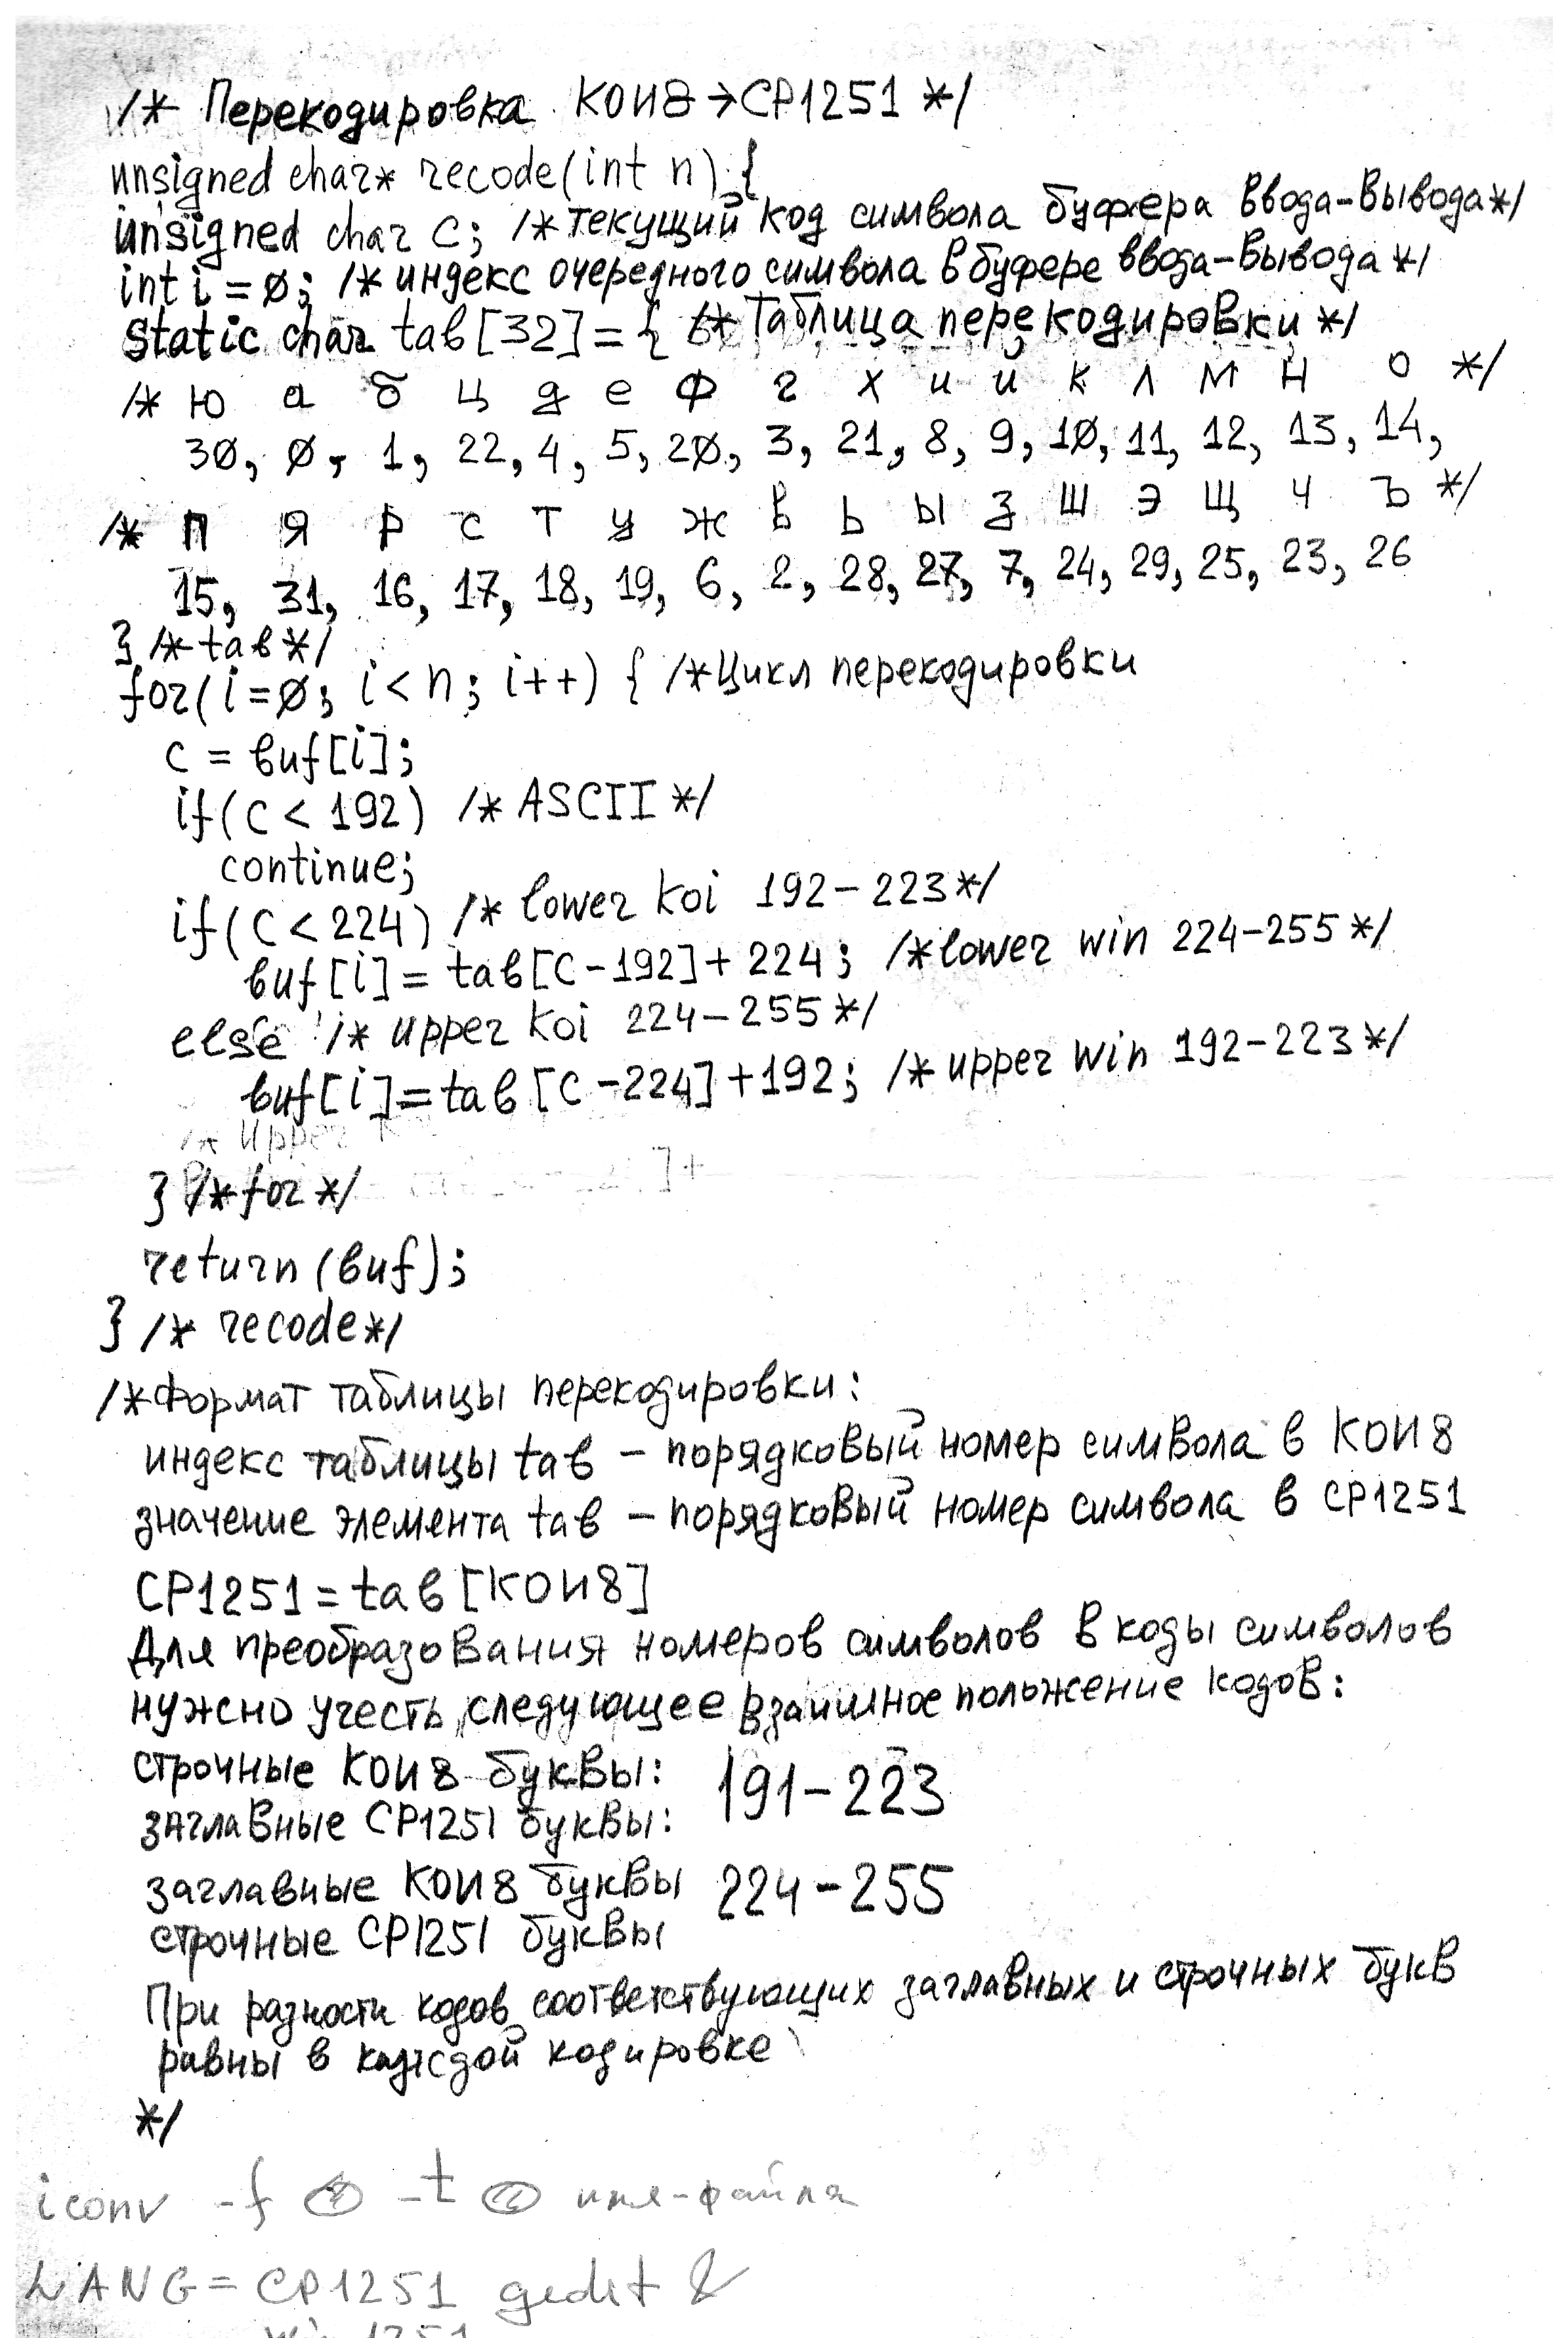 /* Перекодировка КОИ8→CP1251 */
unsigned char* recode(int n) {
unsigned char c; /* текущий код символа буфера ввода-вывода*/
int i = Ø; /* индекс очередного символа в буфере ввода-вывода */
static char tab[32] = { /* Таблица перекодировки */
/* ю а б ц д е ф г х и й к л м н о */
3Ø, Ø, 1, 22, 4, 5, 2Ø, 3, 21, 8, 9, 1Ø, 11, 12, 13, 14,
/* п я р с т у ж в ь ы з ш э щ ч ъ */
15, 31, 16, 17, 18, 19, 6, 2, 28, 27, 7, 24, 29, 25, 23, 26
} /*tab*/
for(i=Ø; i<n; i++) { /*Цикл перекодировки
c = buf[i];
if(c < 192) /* ASCII */
continue;
if(c < 224) /* lower koi 192-223*/
buf[i] = tab[c-192]+224; /*lower win 224-255*/
else /* upper koi 224-255*/
buf[i]=tab[c-224]+192; /* upper win 192-223*/
/* upper
]+
} /*for*/
return (buf);
} /* recode*/
/*Формат таблицы перекодировки:
индекс таблицы tab - порядковый номер символа в КОИ8
значение элемента tab - порядковый номер символа в CP1251
CP1251=tab[КОИ8]
Для преобразования номеров символов в коды символов
нужно учесть следующее взаимное положение кодов:
строчные КОИ8 буквы: 191-223
заглавные CP1251 буквы:
заглавные КОИ8 буквы 224-255
строчные CP1251 буквы
При разности кодов соответствующих заглавных и строчных букв
равны в каждой кодировке
*/
iconv -f -t имя-файла
LANG=CP1251 gedit &
1251